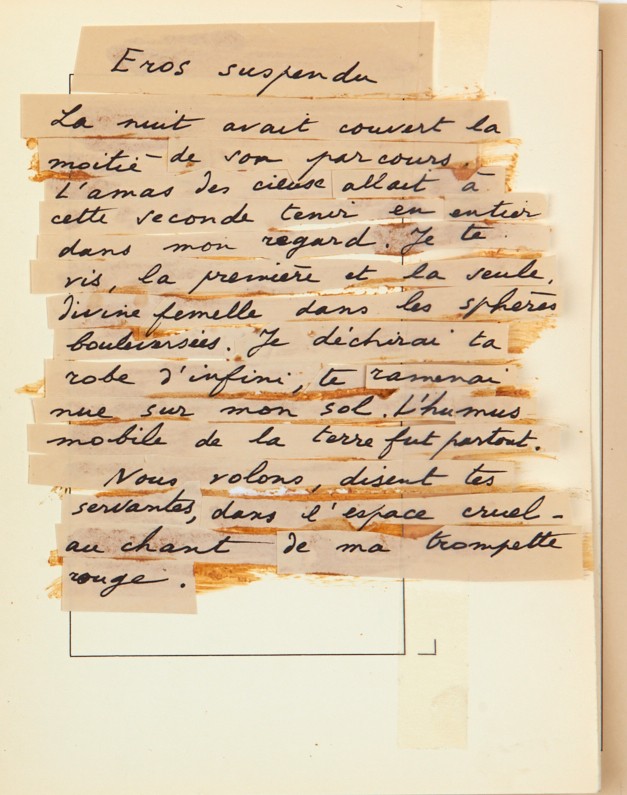 Eros suspendu
La nuit avait couvert la
moitié de son parcours.
L'amas des cieux allait à
cette seconde tenir en entier
dans mon regard. Je te
vis, la première et la seule,
divine femelle dans les sphères
bouleversées. Je déchirai ta
robe d'infini, te ramenai
nue sur mon sol. L'humus
mobile de la terre fut partout.
Nous volons, disent tes
servantes, dans l'espace cruel -
au chant de ma trompette
rouge.